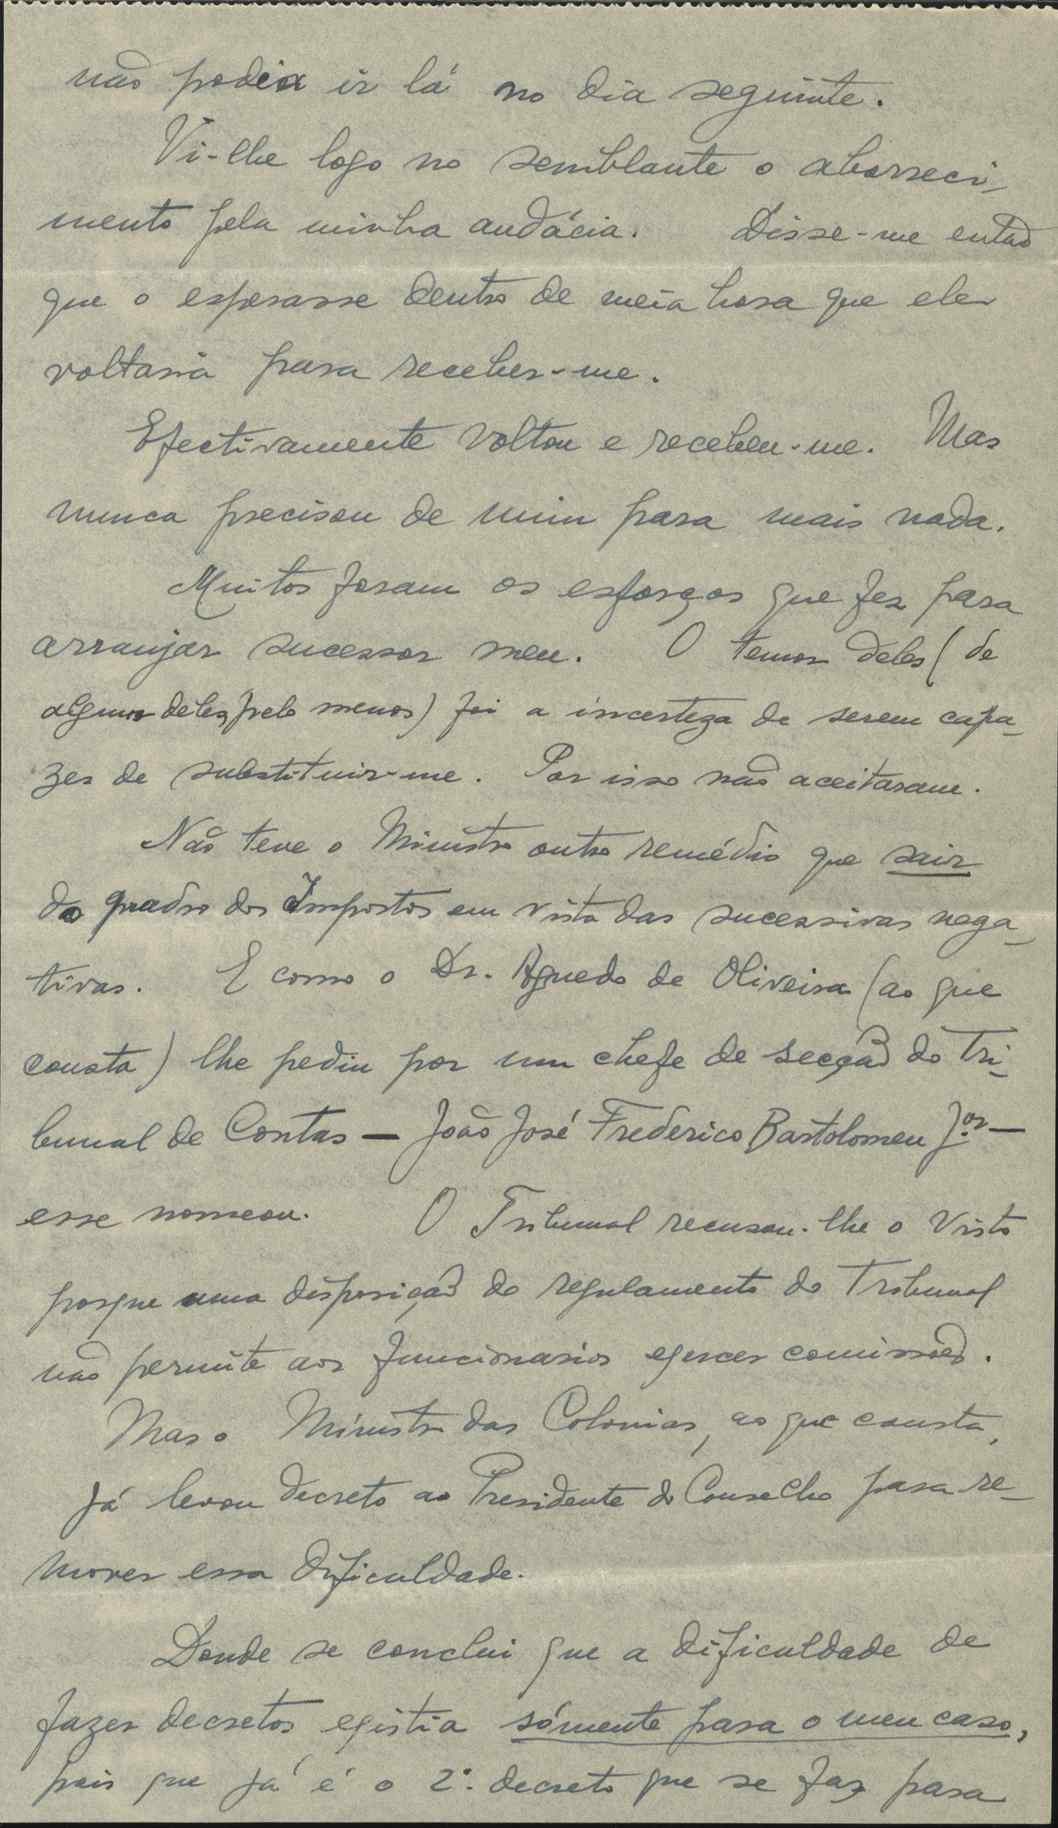 não podia ir lá no dia seguinte.
Vi-lhe logo no semblante o aborreci-
mento pela minha audácia. Disse-me então
que o esperasse dentro de meia hora que ele
voltaria para receber-me.
Efectivamente voltou e recebeu-me. Mas
nunca precisou de mim para mais nada.
Muitos foram os esforços que fez para
arranjar sucessor meu. O temor deles (de
alguns deles pelo menos) foi a incerteza de serem capa-
zes de substituir-me. Por isso não aceitaram.
Não teve o Ministro outro remédio que sair
do quadro dos Impostos em vista das sucessivas nega-
tivas. E como o Dr. Águedo de Oliveira (ao que
consta) lhe pediu por um chefe de secção do Tri-
bunal de Contas — João José Frederico Bartolomeu Jor —
esse nomeou. O Tribunal recusou-lhe o Visto
porque uma disposição do regulamento do Tribunal
não permite aos funcionarios egercer comissões.
Mas o Ministro das Colonias, ao que consta,
já levou decreto ao Presidente do Conselho para re-
mover essa dificuldade.
Donde se conclui que a dificuldade de
fazer decretos egistia sómente para o meu caso,
pois que já é o 2º. decreto que se faz para